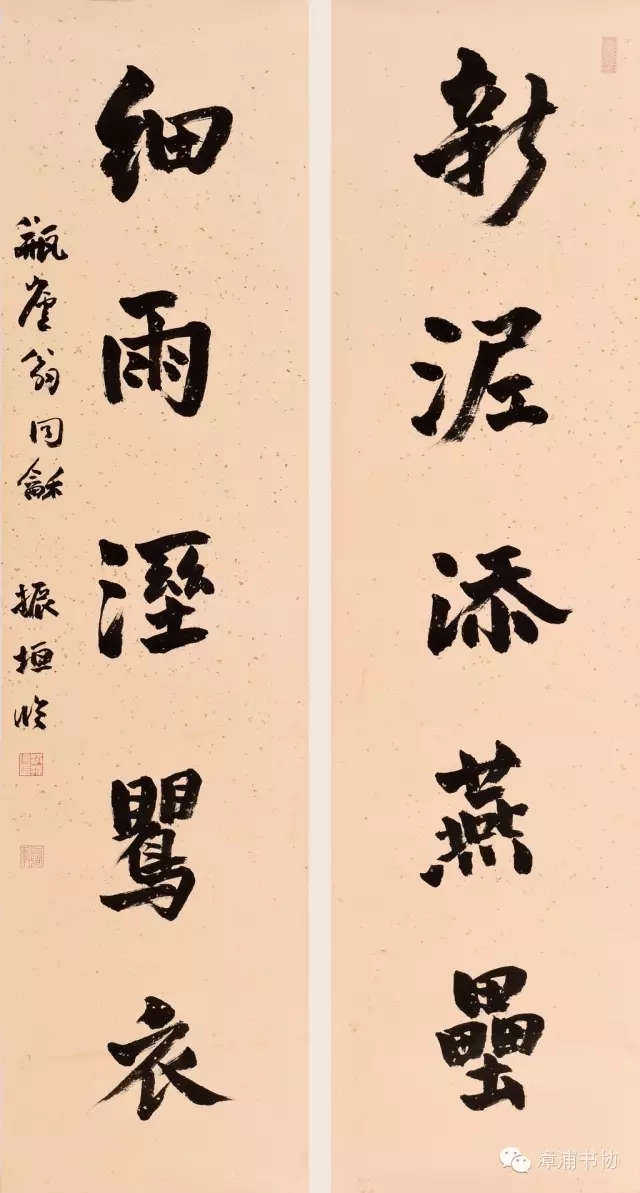 新泥添燕壘
細雨溼鸎衣
瓶廬翁同龢 振垣臨
漳浦书协